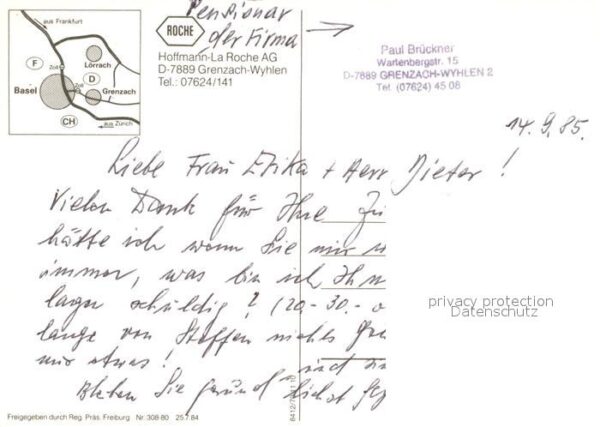 Pensionär
der Firma
aus Frankfurt
F
Zoll
Lörrach
D
Zoll
Basel
Grenzach
CH
aus Zürich
ROCHE
Hoffmann-La Roche AG
D-7889 Grenzach-Wyhlen
Tel.: 07624/141
Paul Brückner
Wartenbergstr. 15
D-7889 GRENZACH-WYHLEN 2
Tel. (07624) 45 08
14.9.85.
Liebe Frau Erika + Herr Dieter!
Vielen Dank für Ihre
hätte ich wenn Sie mir
immer, was bin ich
schuldig? (20.- 30.-
lange von nichts
mir etwas!
Bleiben Sie gesund
privacy protection
Datenschutz
Freigegeben durch Reg. Präs. Freiburg Nr. 308-80 25.7.84